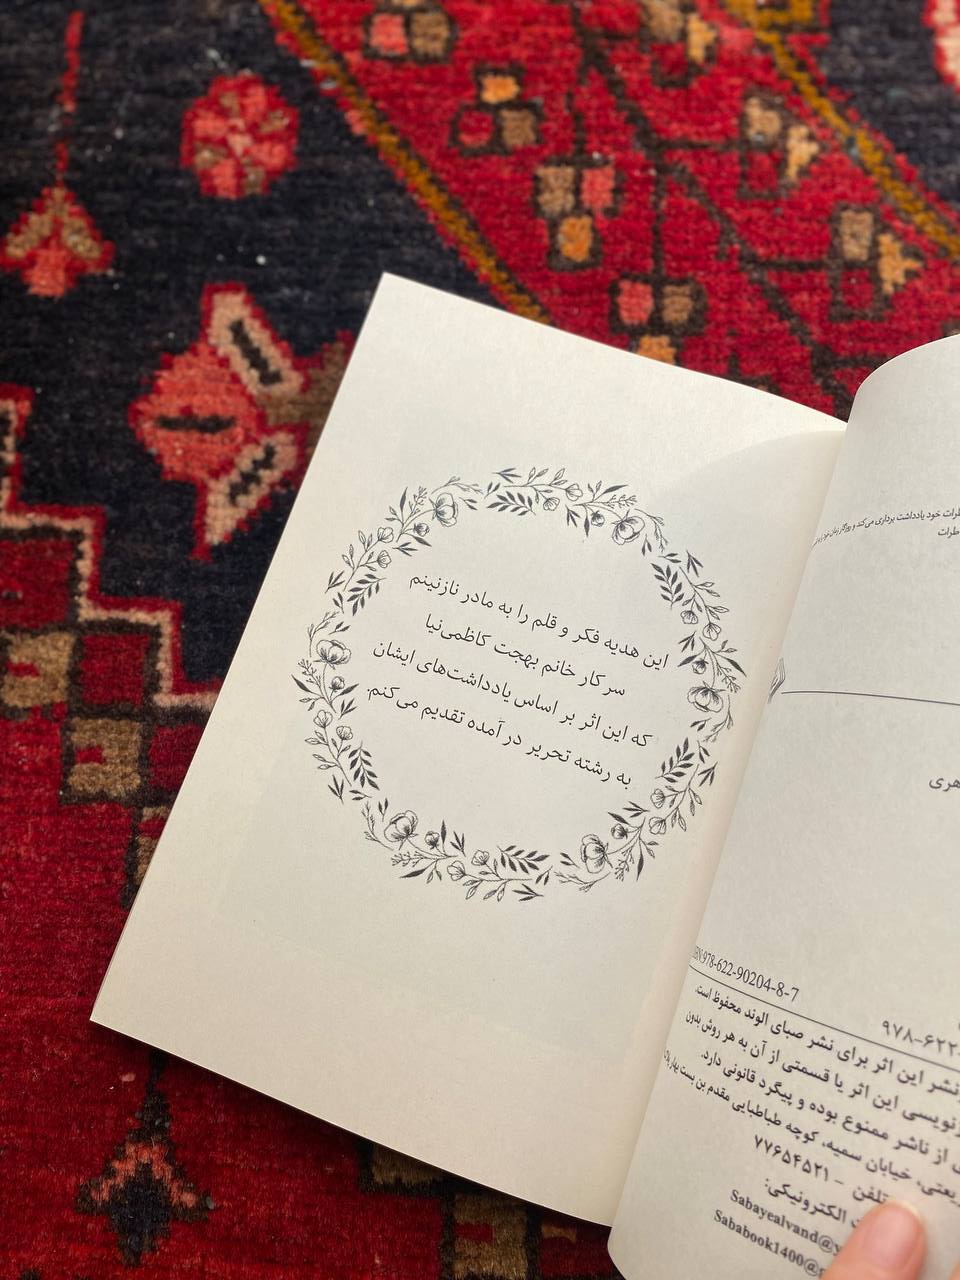 این هدیه فکر و قلم را به مادر نازنینم
سرکار خانم بهجت کاظمی‌نیا
که این اثر بر اساس یادداشت‌های ایشان
به رشته تحریر در آمده تقدیم می‌کنم.
خود یادداشت برداری می‌کند و روزگار
978-622-90204-8-7
۹۷۸-۶۲۲
نشر این اثر برای نشر صبای الوند محفوظ است.
این اثر یا قسمتی از آن به هر روش بدون
از ناشر ممنوع بوده و پیگرد قانونی دارد.
خیابان سمیه، کوچه طباطبایی مقدم بن بست بهار
تلفن - ۷۷۶۵۴۵۲۱
الکترونیکی:
Sabayealvand@
Sababook1400@